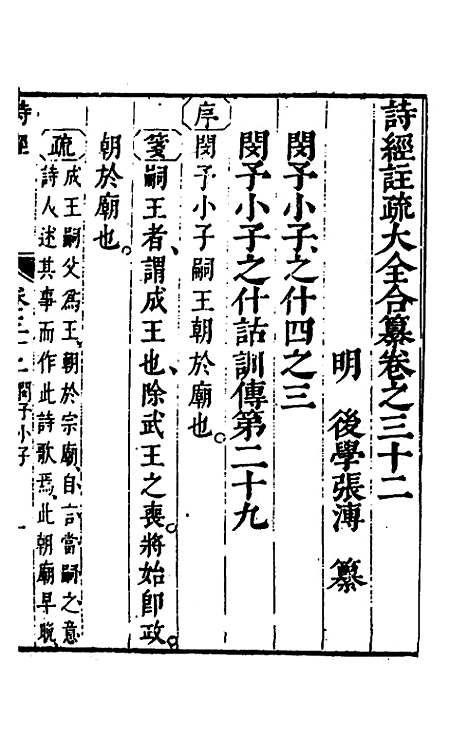 詩經註疏大全合纂卷之三十二
明 後學張溥 纂
閔予小子之什四之三
閔予小子之什詁訓傳第二十九
序 閔予小子嗣王朝於廟也。
箋 嗣王者、謂成王也、除武王之喪。將始即政。
朝於廟也。
疏 成王嗣父為王、朝於宗廟、自言當嗣之意
詩人述其事而作此詩歌焉、此朝廟早晚、
詩經 卷之三十二 閔予小子 一